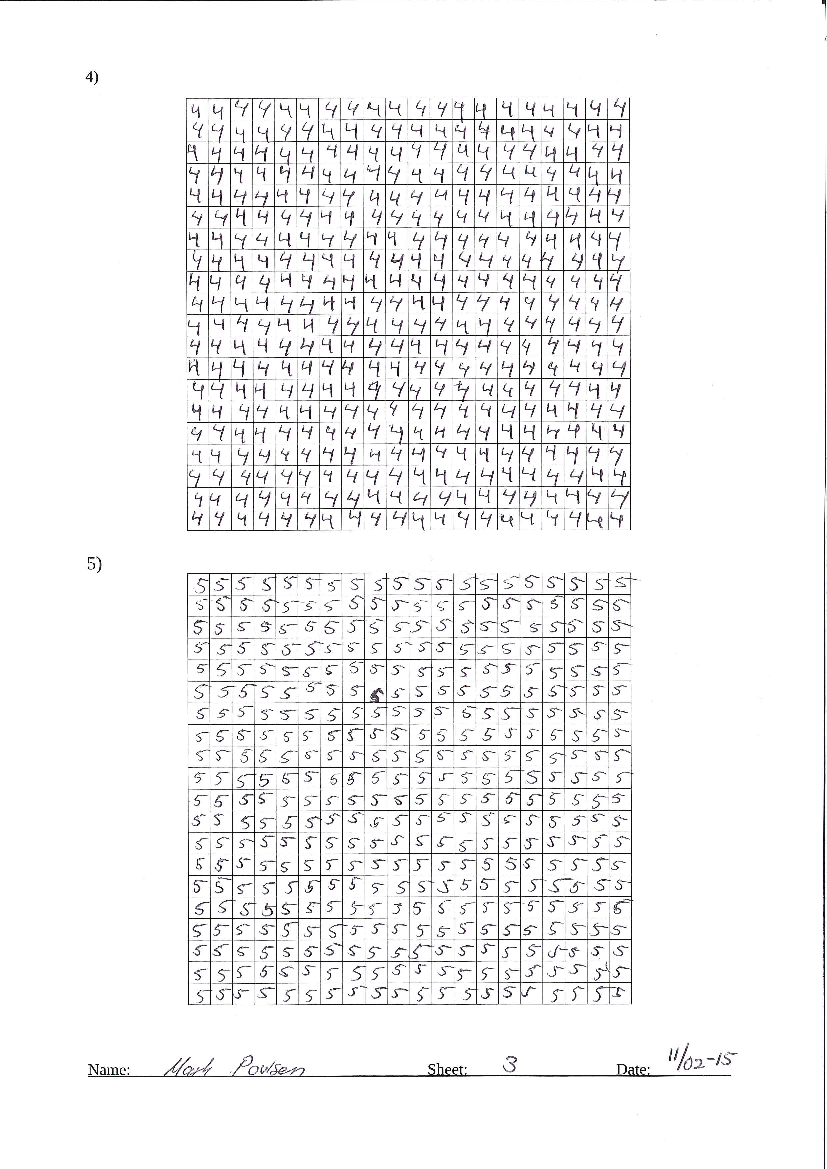 4)
4 4 4 4 4 4 4 4 4 4 4 4 4 4 4 4 4 4 4 4
4 4 4 4 4 4 4 4 4 4 4 4 4 4 4 4 4 4 4 4
4 4 4 4 4 4 4 4 4 4 4 4 4 4 4 4 4 4 4 4
4 4 4 4 4 4 4 4 4 4 4 4 4 4 4 4 4 4 4 4
4 4 4 4 4 4 4 4 4 4 4 4 4 4 4 4 4 4 4 4
4 4 4 4 4 4 4 4 4 4 4 4 4 4 4 4 4 4 4 4
4 4 4 4 4 4 4 4 4 4 4 4 4 4 4 4 4 4 4 4
4 4 4 4 4 4 4 4 4 4 4 4 4 4 4 4 4 4 4 4
4 4 4 4 4 4 4 4 4 4 4 4 4 4 4 4 4 4 4 4
4 4 4 4 4 4 4 4 4 4 4 4 4 4 4 4 4 4 4 4
4 4 4 4 4 4 4 4 4 4 4 4 4 4 4 4 4 4 4 4
4 4 4 4 4 4 4 4 4 4 4 4 4 4 4 4 4 4 4 4
4 4 4 4 4 4 4 4 4 4 4 4 4 4 4 4 4 4 4 4
4 4 4 4 4 4 4 4 4 4 4 4 4 4 4 4 4 4 4 4
4 4 4 4 4 4 4 4 4 4 4 4 4 4 4 4 4 4 4 4
4 4 4 4 4 4 4 4 4 4 4 4 4 4 4 4 4 4 4 4
4 4 4 4 4 4 4 4 4 4 4 4 4 4 4 4 4 4 4 4
4 4 4 4 4 4 4 4 4 4 4 4 4 4 4 4 4 4 4 4
4 4 4 4 4 4 4 4 4 4 4 4 4 4 4 4 4 4 4 4
4 4 4 4 4 4 4 4 4 4 4 4 4 4 4 4 4 4 4 4
5)
5 5 5 5 5 5 5 5 5 5 5 5 5 5 5 5 5 5 5 5
5 5 5 5 5 5 5 5 5 5 5 5 5 5 5 5 5 5 5 5
5 5 5 5 5 5 5 5 5 5 5 5 5 5 5 5 5 5 5 5
5 5 5 5 5 5 5 5 5 5 5 5 5 5 5 5 5 5 5 5
5 5 5 5 5 5 5 5 5 5 5 5 5 5 5 5 5 5 5 5
5 5 5 5 5 5 5 5 5 5 5 5 5 5 5 5 5 5 5 5
5 5 5 5 5 5 5 5 5 5 5 5 5 5 5 5 5 5 5 5
5 5 5 5 5 5 5 5 5 5 5 5 5 5 5 5 5 5 5 5
5 5 5 5 5 5 5 5 5 5 5 5 5 5 5 5 5 5 5 5
5 5 5 5 5 5 5 5 5 5 5 5 5 5 5 5 5 5 5 5
5 5 5 5 5 5 5 5 5 5 5 5 5 5 5 5 5 5 5 5
5 5 5 5 5 5 5 5 5 5 5 5 5 5 5 5 5 5 5 5
5 5 5 5 5 5 5 5 5 5 5 5 5 5 5 5 5 5 5 5
5 5 5 5 5 5 5 5 5 5 5 5 5 5 5 5 5 5 5 5
5 5 5 5 5 5 5 5 5 5 5 5 5 5 5 5 5 5 5 5
5 5 5 5 5 5 5 5 5 5 5 5 5 5 5 5 5 5 5 5
5 5 5 5 5 5 5 5 5 5 5 5 5 5 5 5 5 5 5 5
5 5 5 5 5 5 5 5 5 5 5 5 5 5 5 5 5 5 5 5
5 5 5 5 5 5 5 5 5 5 5 5 5 5 5 5 5 5 5 5
5 5 5 5 5 5 5 5 5 5 5 5 5 5 5 5 5 5 5 5
Name: Mark Povlsen Sheet: 3 Date: 11/02-15